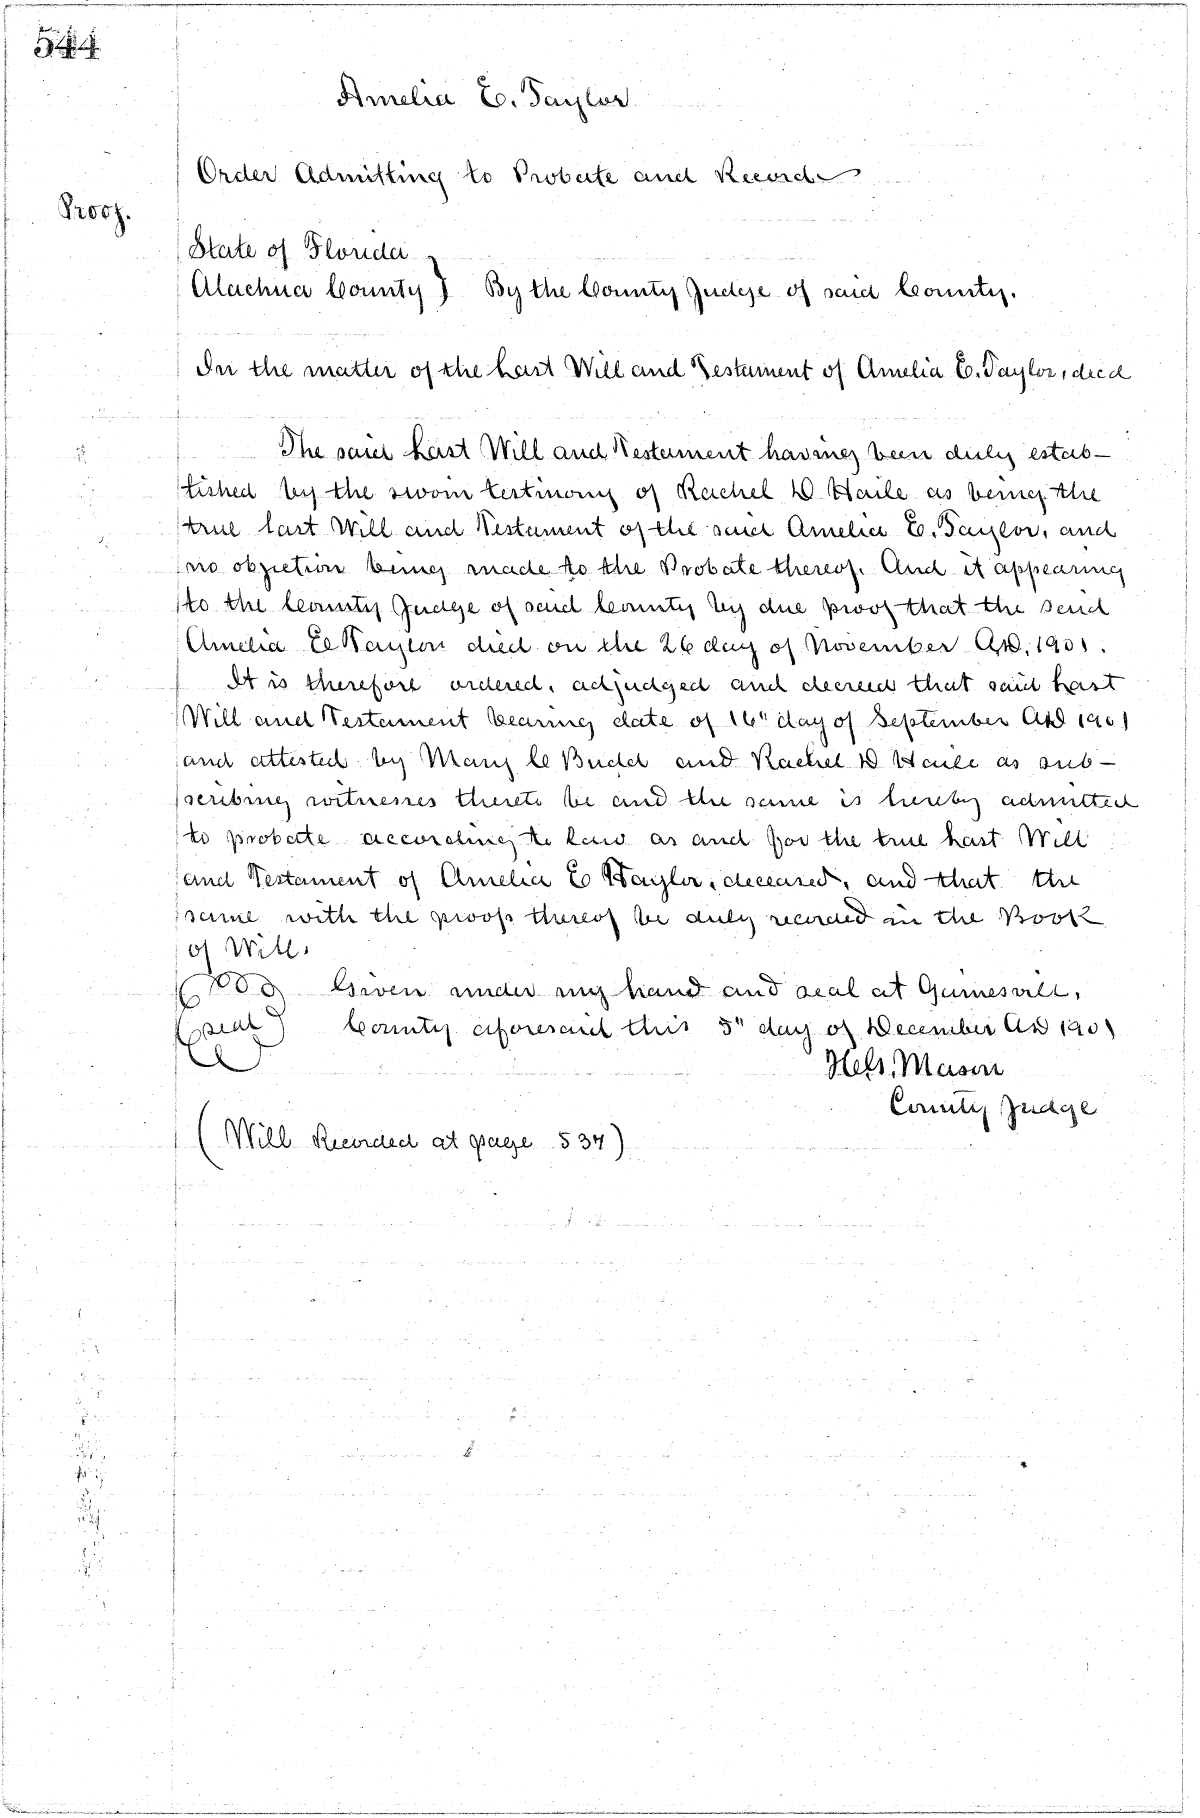 544
Amelia E. Taylor
Order Admitting to Probate and Record
Proof.
State of Florida
Alachua County } By the County Judge of said County.
In the matter of the Last Will and Testament of Amelia E. Taylor, dec'd
The said Last Will and Testament having been duly estab-
lished by the sworn testimony of Rachel D Haile as being the
true last Will and Testament of the said Amelia E. Taylor, and
no objection being made to the Probate thereof. And it appearing
to the County Judge of said County by due proof that the said
Amelia E Taylor died on the 26 day of November A.D. 1901.
It is therefore ordered, adjudged and decreed that said Last
Will and Testament bearing date of 16" day of September AD 1901
and attested by Mary C Budd and Rachel D Haile as sub-
scribing witnesses thereto be and the same is hereby admitted
to probate according to law as and for the true Last Will
and Testament of Amelia E Taylor, deceased, and that the
same with the proofs thereof be duly recorded in the Book
of Will.
Given under my hand and seal at Gainesvill,
(seal) County aforesaid this 5" day of December AD 1901
Mason
County Judge
(Will Recorded at page 537)